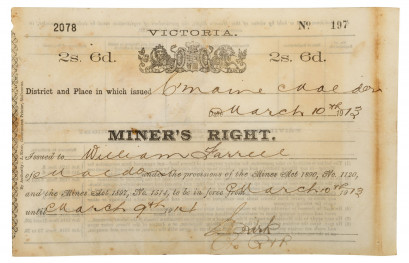 2078 VICTORIA. No 197
2s. 6d. 2s. 6d.
District and Place in which issued C'maine Maldon
Date March 10th 1913
MINER'S RIGHT.
Issued to William Farrell
of Maldon under the provisions of the Mines Act 1890, No. 1120,
and the Mines Act 1897, No. 1514, to be in force from March 10th 1913
until March 9th 1914